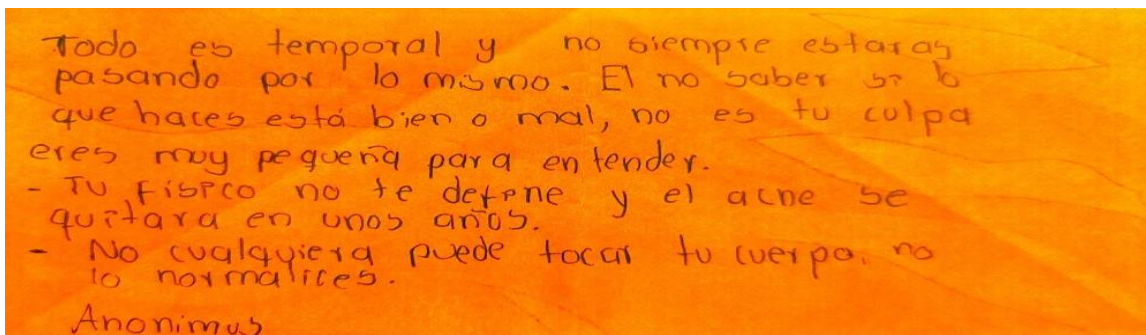 Todo es temporal y no siempre estaras
pasando por lo mismo. El no saber si lo
que haces está bien o mal, no es tu culpa
eres muy pequeña para entender.
- Tu Fisico no te define y el acne se
quitara en unos años.
- No cualquiera puede tocar tu cuerpo, no
lo normalices.
Anonimus